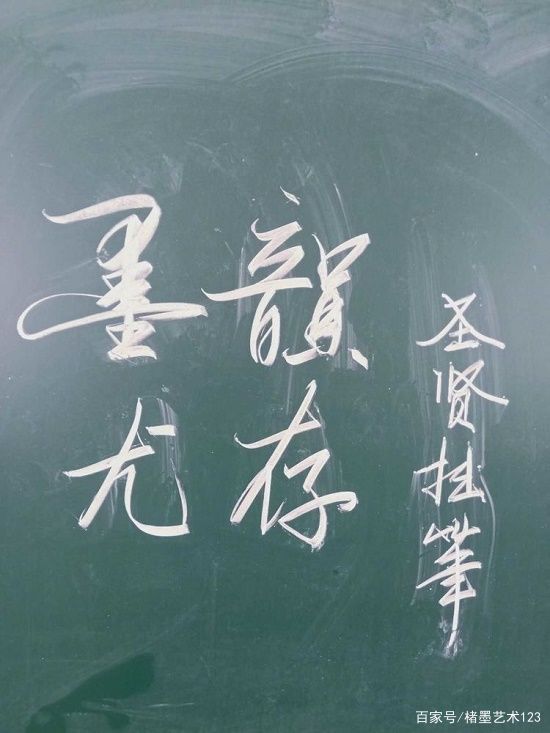 墨韻
尤存
圣贤拙筆
百家号/楮墨艺术123